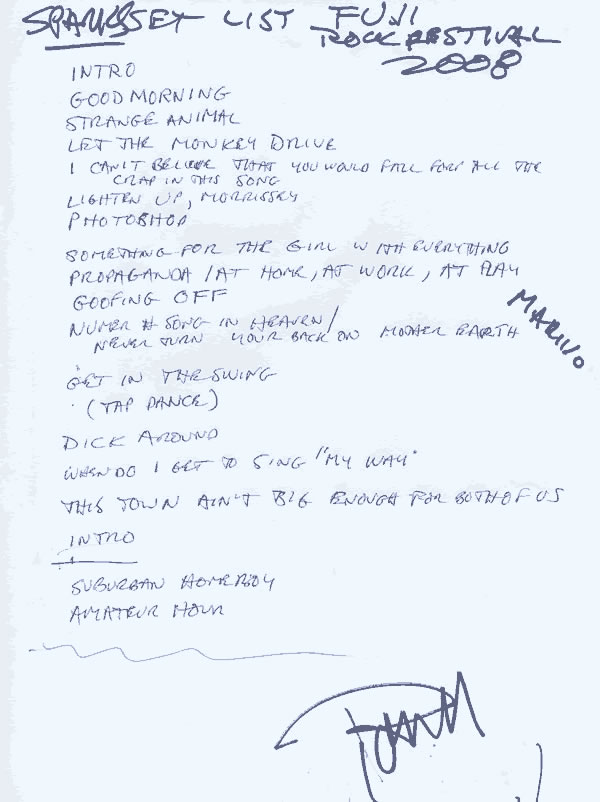 SPARKS SET LIST FUJI
ROCK FESTIVAL
2008
INTRO
GOOD MORNING
STRANGE ANIMAL
LET THE MONKEY DRIVE
I CAN'T BELIEVE THAT YOU WOULD FALL FOR ALL THE
CRAP IN THIS SONG
LIGHTEN UP, MORRISSEY
PHOTOSHOP
SOMETHING FOR THE GIRL WITH EVERYTHING
PROPAGANDA / AT HOME, AT WORK, AT PLAY
GOOFING OFF
NUMER # SONG IN HEAVEN /
NEVER TURN YOUR BACK ON MOTHER EARTH
MARIVO
GET IN THE SWING
(TAP DANCE)
DICK AROUND
WHEN DO I GET TO SING "MY WAY"
THIS TOWN AIN'T BIG ENOUGH FOR BOTH OF US
INTRO
SUBURBAN HOMEBOY
AMATEUR HOUR